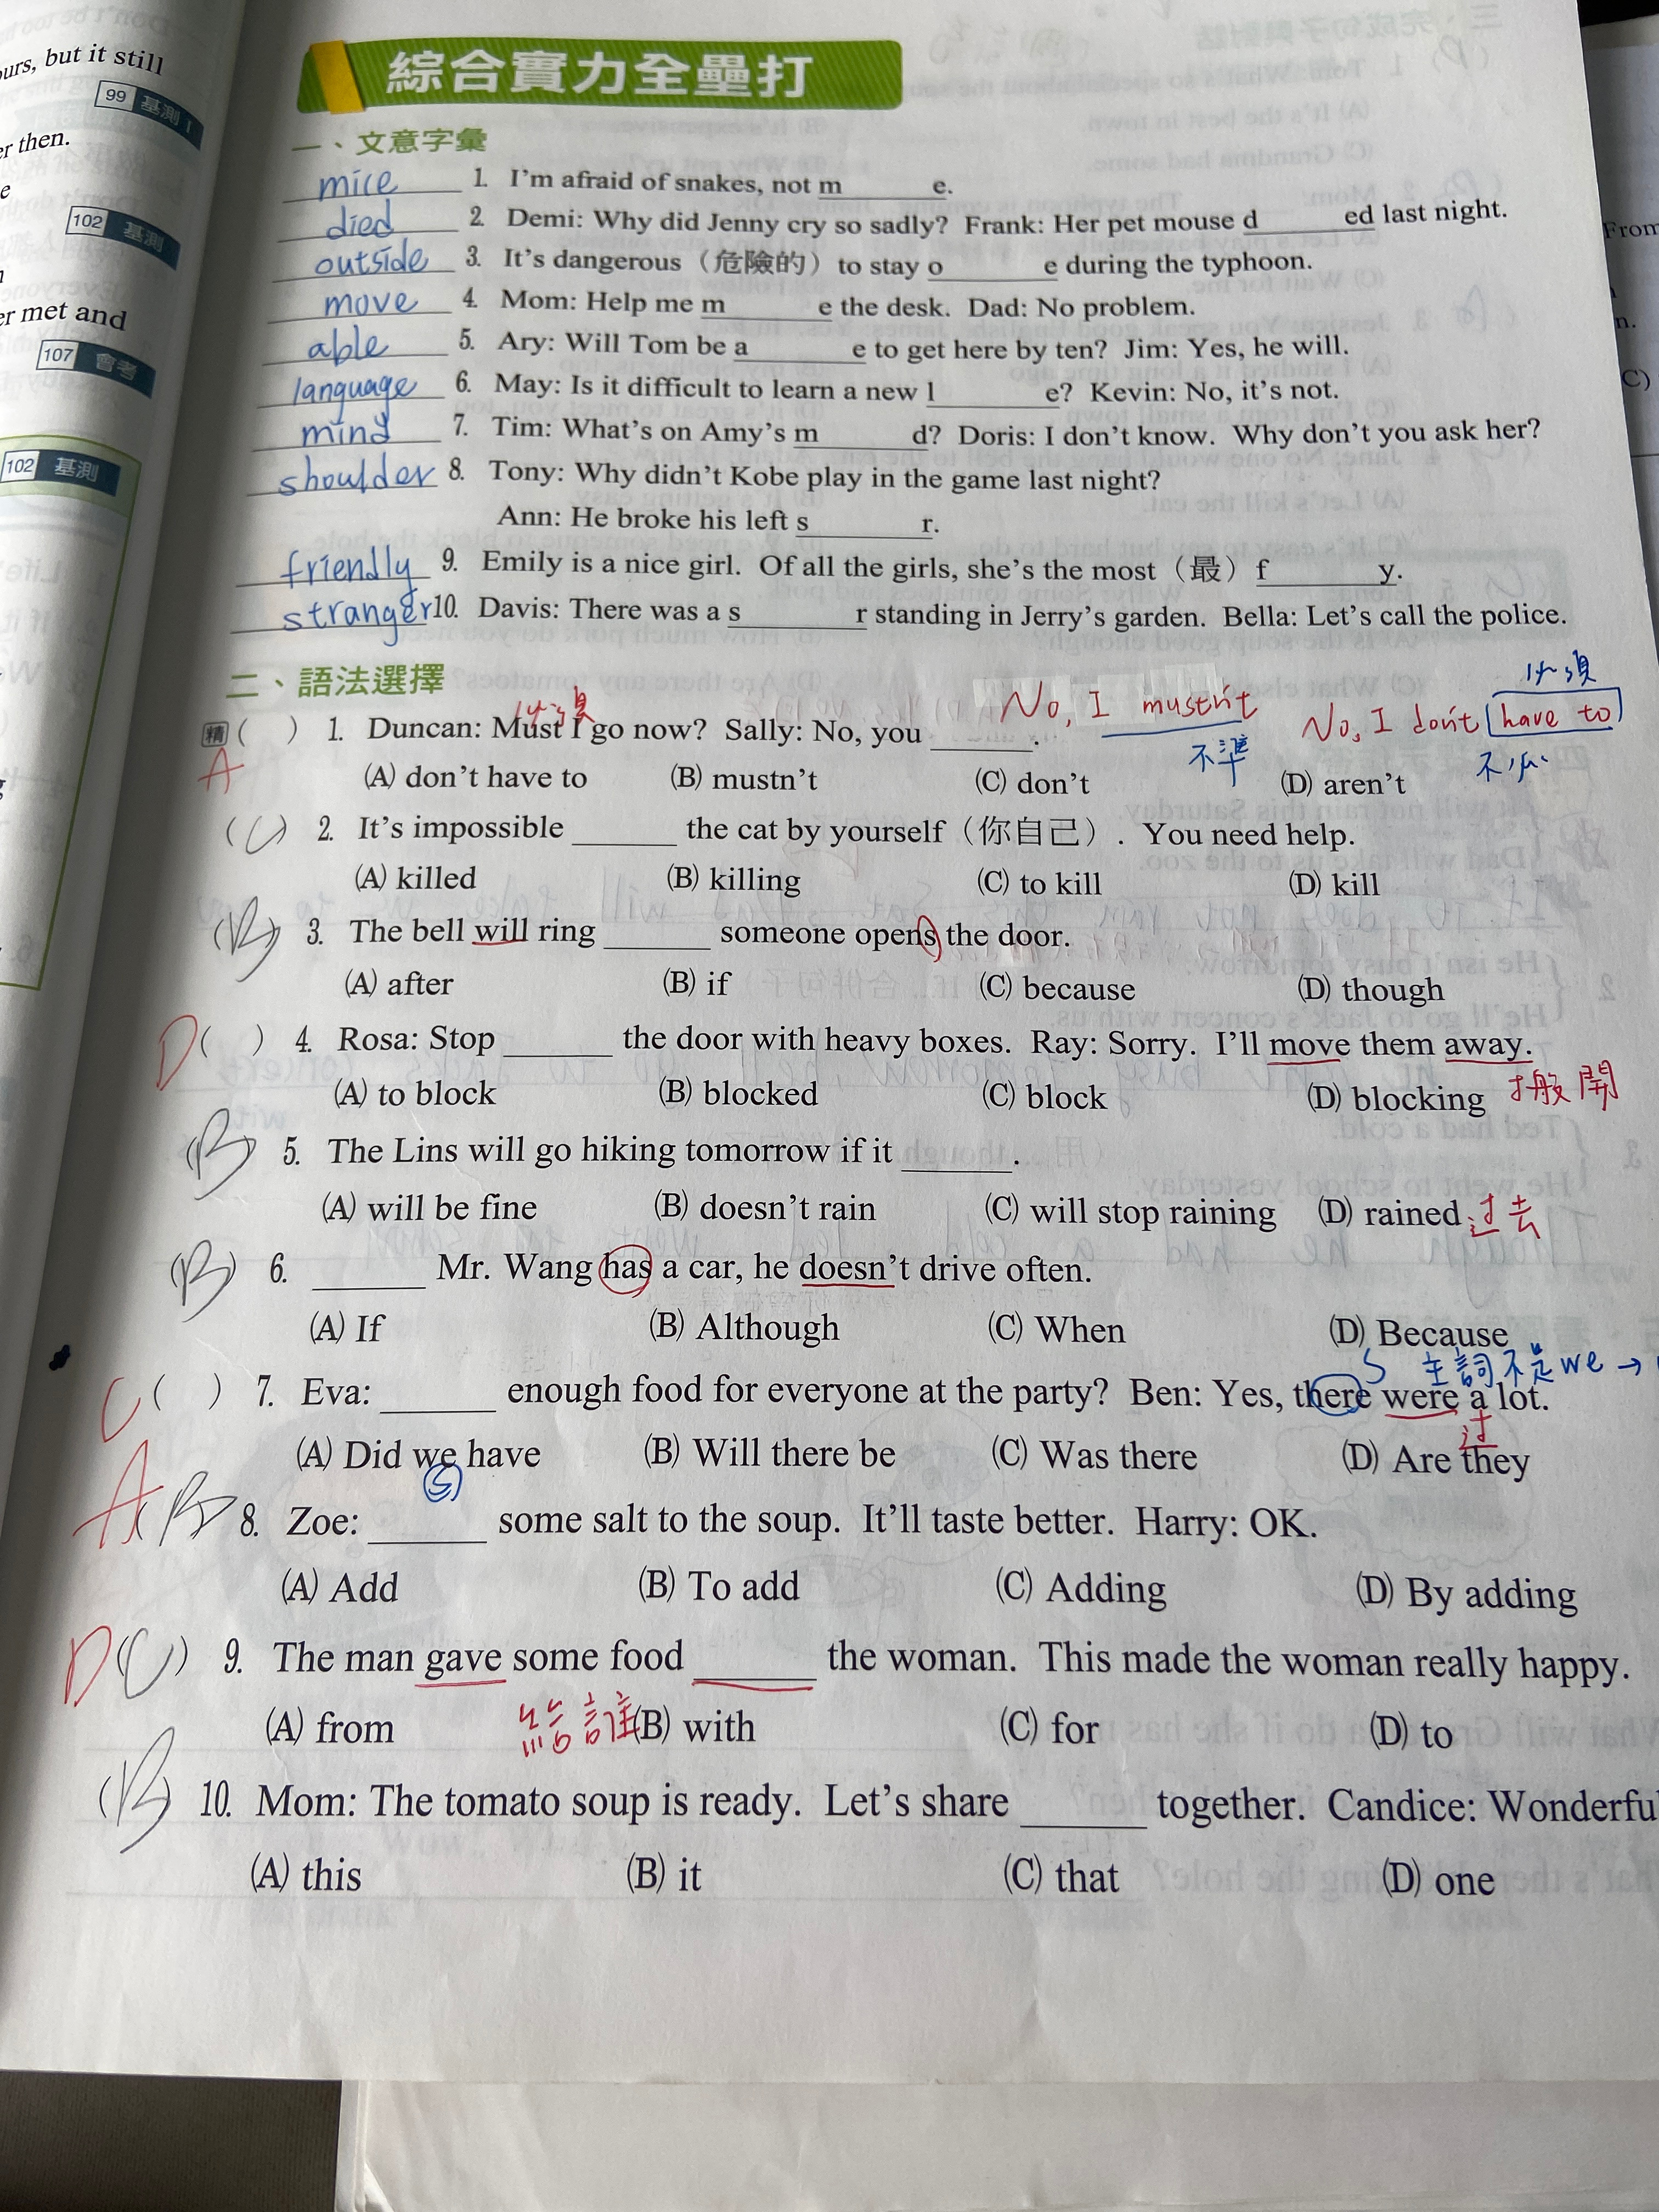 ours, but it still
99 基測 1
er then.
e
102 基測
er met and
107 會考
102 基測
綜合實力全壘打
一、文意字彙
mice 1. I'm afraid of snakes, not m______e.
died 2. Demi: Why did Jenny cry so sadly? Frank: Her pet mouse d______ed last night.
outside 3. It's dangerous（危險的）to stay o______e during the typhoon.
move 4. Mom: Help me m______e the desk. Dad: No problem.
able 5. Ary: Will Tom be a______e to get here by ten? Jim: Yes, he will.
language 6. May: Is it difficult to learn a new l______e? Kevin: No, it's not.
mind 7. Tim: What's on Amy's m______d? Doris: I don't know. Why don't you ask her?
shoulder 8. Tony: Why didn't Kobe play in the game last night?
Ann: He broke his left s______r.
friendly 9. Emily is a nice girl. Of all the girls, she's the most（最）f______y.
stranger 10. Davis: There was a s______r standing in Jerry's garden. Bella: Let's call the police.
二、語法選擇
必須
必須 No, I mustn't No, I don't have to
精 ( ) 1. Duncan: Must I go now? Sally: No, you ______.
不準 不必
A (A) don't have to (B) mustn't (C) don't (D) aren't
(C) 2. It's impossible ______ the cat by yourself（你自己）. You need help.
(A) killed (B) killing (C) to kill (D) kill
(B) 3. The bell will ring ______ someone opens the door.
(A) after (B) if (C) because (D) though
D ( ) 4. Rosa: Stop ______ the door with heavy boxes. Ray: Sorry. I'll move them away.
(A) to block (B) blocked (C) block (D) blocking 搬開
(B) 5. The Lins will go hiking tomorrow if it ______.
(A) will be fine (B) doesn't rain (C) will stop raining (D) rained 过去
(B) 6. ______ Mr. Wang has a car, he doesn't drive often.
(A) If (B) Although (C) When (D) Because
S 主詞不是we →
C ( ) 7. Eva: ______ enough food for everyone at the party? Ben: Yes, there were a lot.
过
(A) Did we have (B) Will there be (C) Was there (D) Are they
S
A (B) 8. Zoe: ______ some salt to the soup. It'll taste better. Harry: OK.
(A) Add (B) To add (C) Adding (D) By adding
D (C) 9. The man gave some food ______ the woman. This made the woman really happy.
給誰
(A) from (B) with (C) for (D) to
(B) 10. Mom: The tomato soup is ready. Let's share ______ together. Candice: Wonderful
(A) this (B) it (C) that (D) one
From
n.
C)